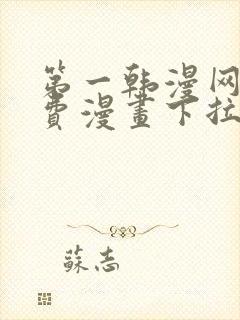 第一韩漫网
费漫畫下拉
蘇志